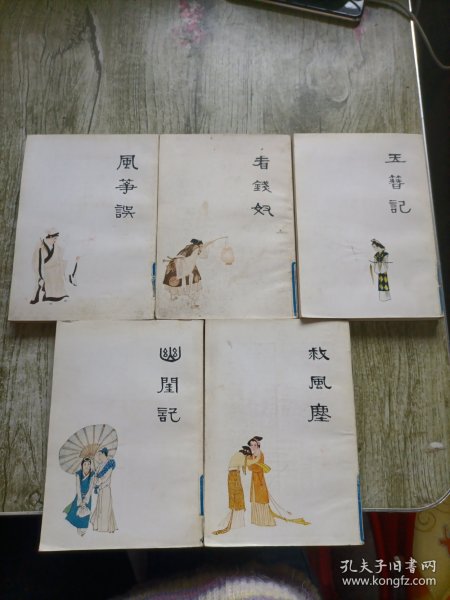 風箏誤
看錢奴
玉簪記
幽閨記
救風塵
孔夫子旧书网
www.kongfz.com